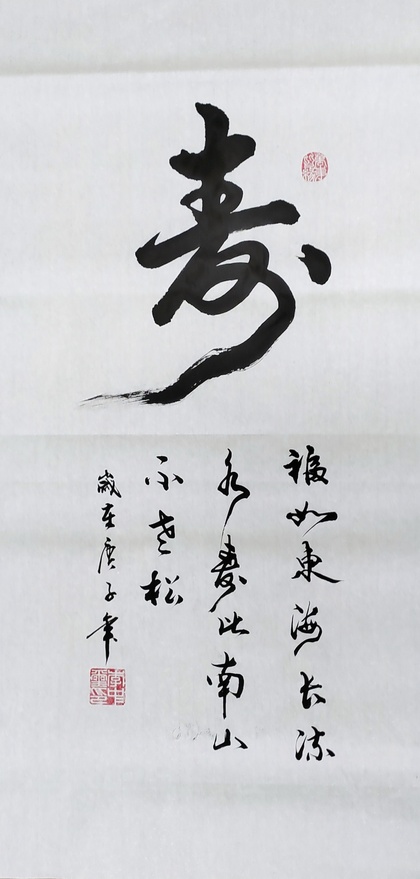 寿
福如東海长流
水寿比南山
不老松
歲在庚子年